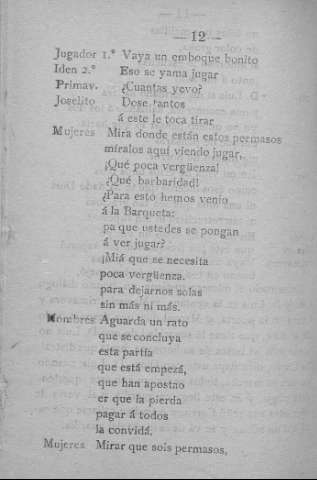 — 12 —
Jugador 1.° Vaya un emboque bonito
Iden 2.° Eso se yama jugar
Primav. ¿Cuantas yevo?
Joselito Dose tantos
á este le toca tirar
Mujeres Mira donde están estos permasos
míralos aquí viendo jugar,
¡Qué poca vergüenza!
¡Qué barbaridad!
¿Para esto hemos venío
á la Barqueta:
pa que ustedes se pongan
á ver jugar?
¡Miá que se necesita
poca vergüenza.
para dejarnos solas
sin más ni más.
Hombres Aguarda un rato
que se concluya
esta partía
que está empezá,
que han apostao
er que la pierda
pagar á todos
la convidá.
Mujeres Mirar que sois permasos,